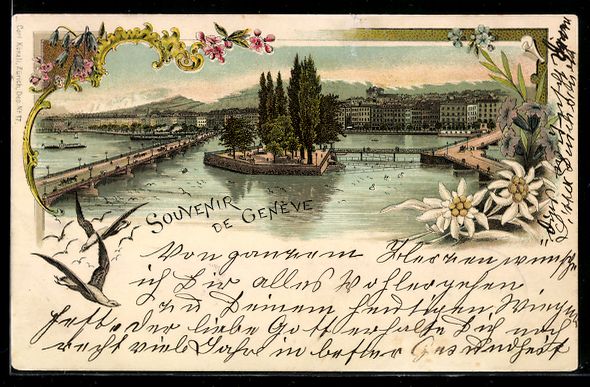 Carl Künzli, Zürich, Dep. No 17.
SOUVENIR
DE GENÈVE
Von ganzem Herzen wünsche
ich Dir alles Wohlergehen
zu Deinem heutigen Wiegen
feste. Der liebe Gott erhalte Dich noch
recht viele Jahre in bester Gesundheit